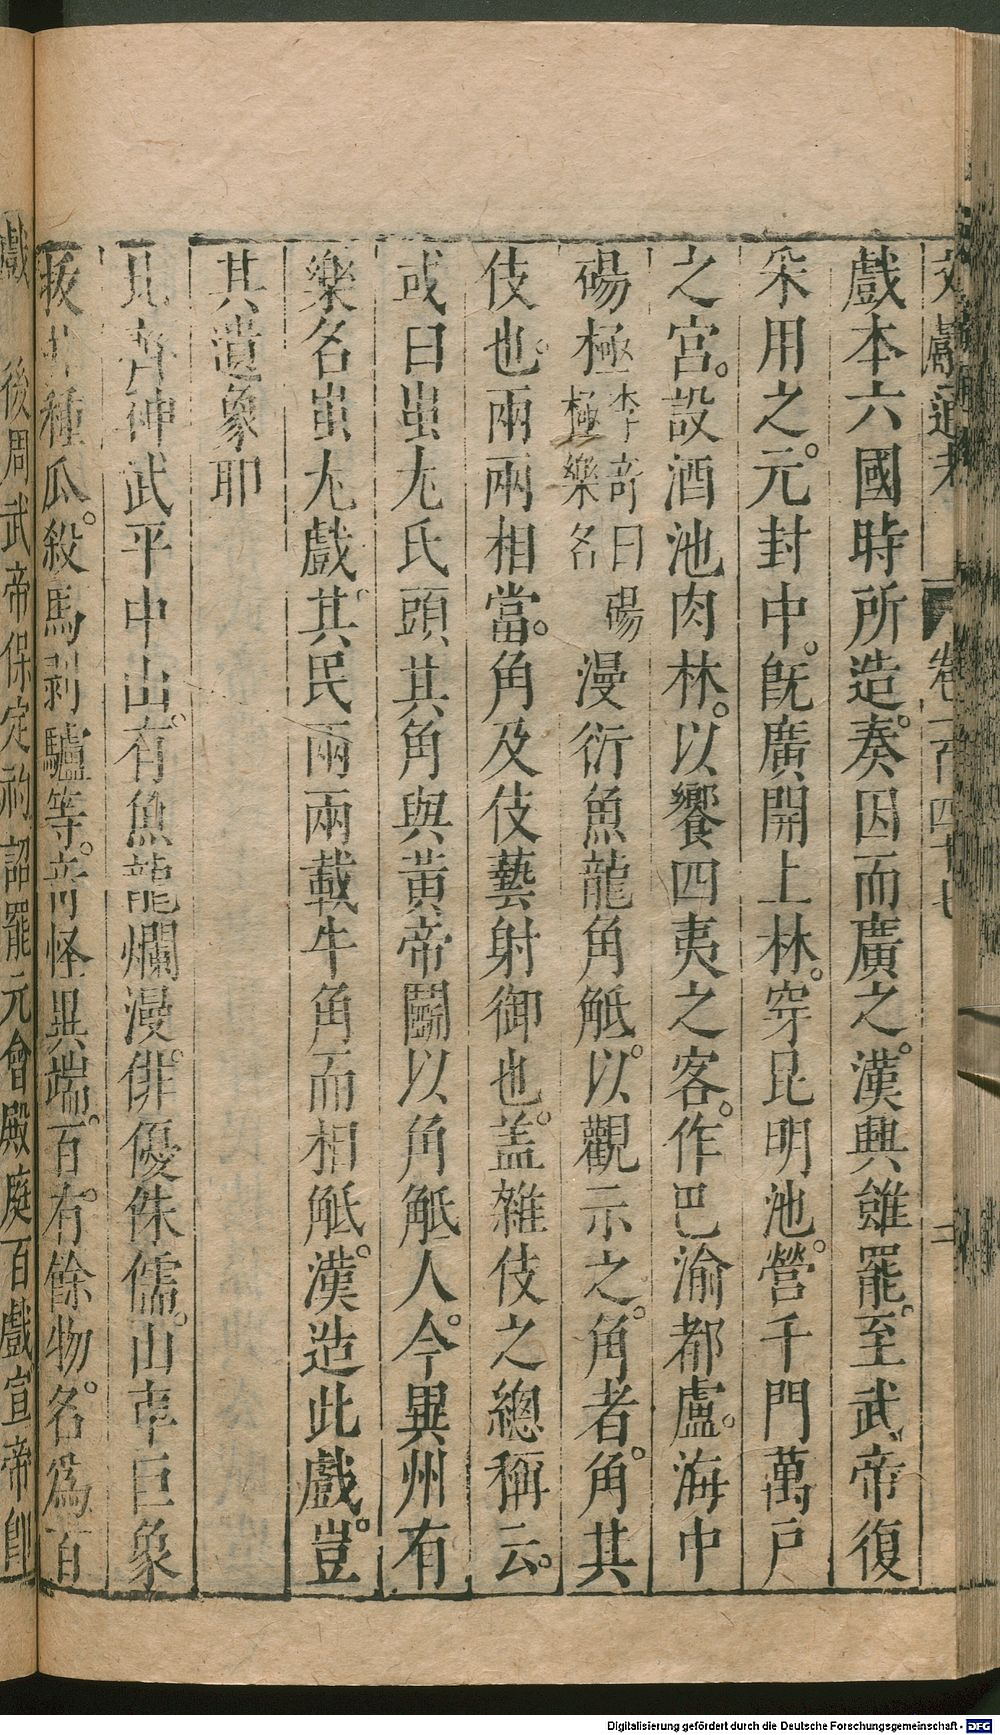 文獻通考 卷一百四十七 二
戲本六國時所造。秦因而廣之。漢興雖罷。至武帝復
采用之。元封中。既廣開上林。穿昆明池。營千門萬戶
之宮。設酒池肉林。以饗四夷之客。作巴渝都盧。海中
碭極 李奇曰碭極樂名 漫衍魚龍角觝。以觀示之。角者。角其
伎也。兩兩相當。角及伎藝射御也。盖雜伎之總稱云。
或曰蚩尤氏頭其角與黃帝鬬以角觝人。今冀州有
樂名蚩尤戲。其民兩兩載牛角而相觝。漢造此戲。豈
其遺象耶
北齊神武平中山。有魚龍爛漫。俳優侏儒。山車巨象
拔井種瓜。殺馬剥驢等。奇怪異端。百有餘物。名爲百
戲 後周武帝保定初詔罷元會殿庭百戲宣帝即
Digitalisierung gefördert durch die Deutsche Forschungsgemeinschaft - DFG